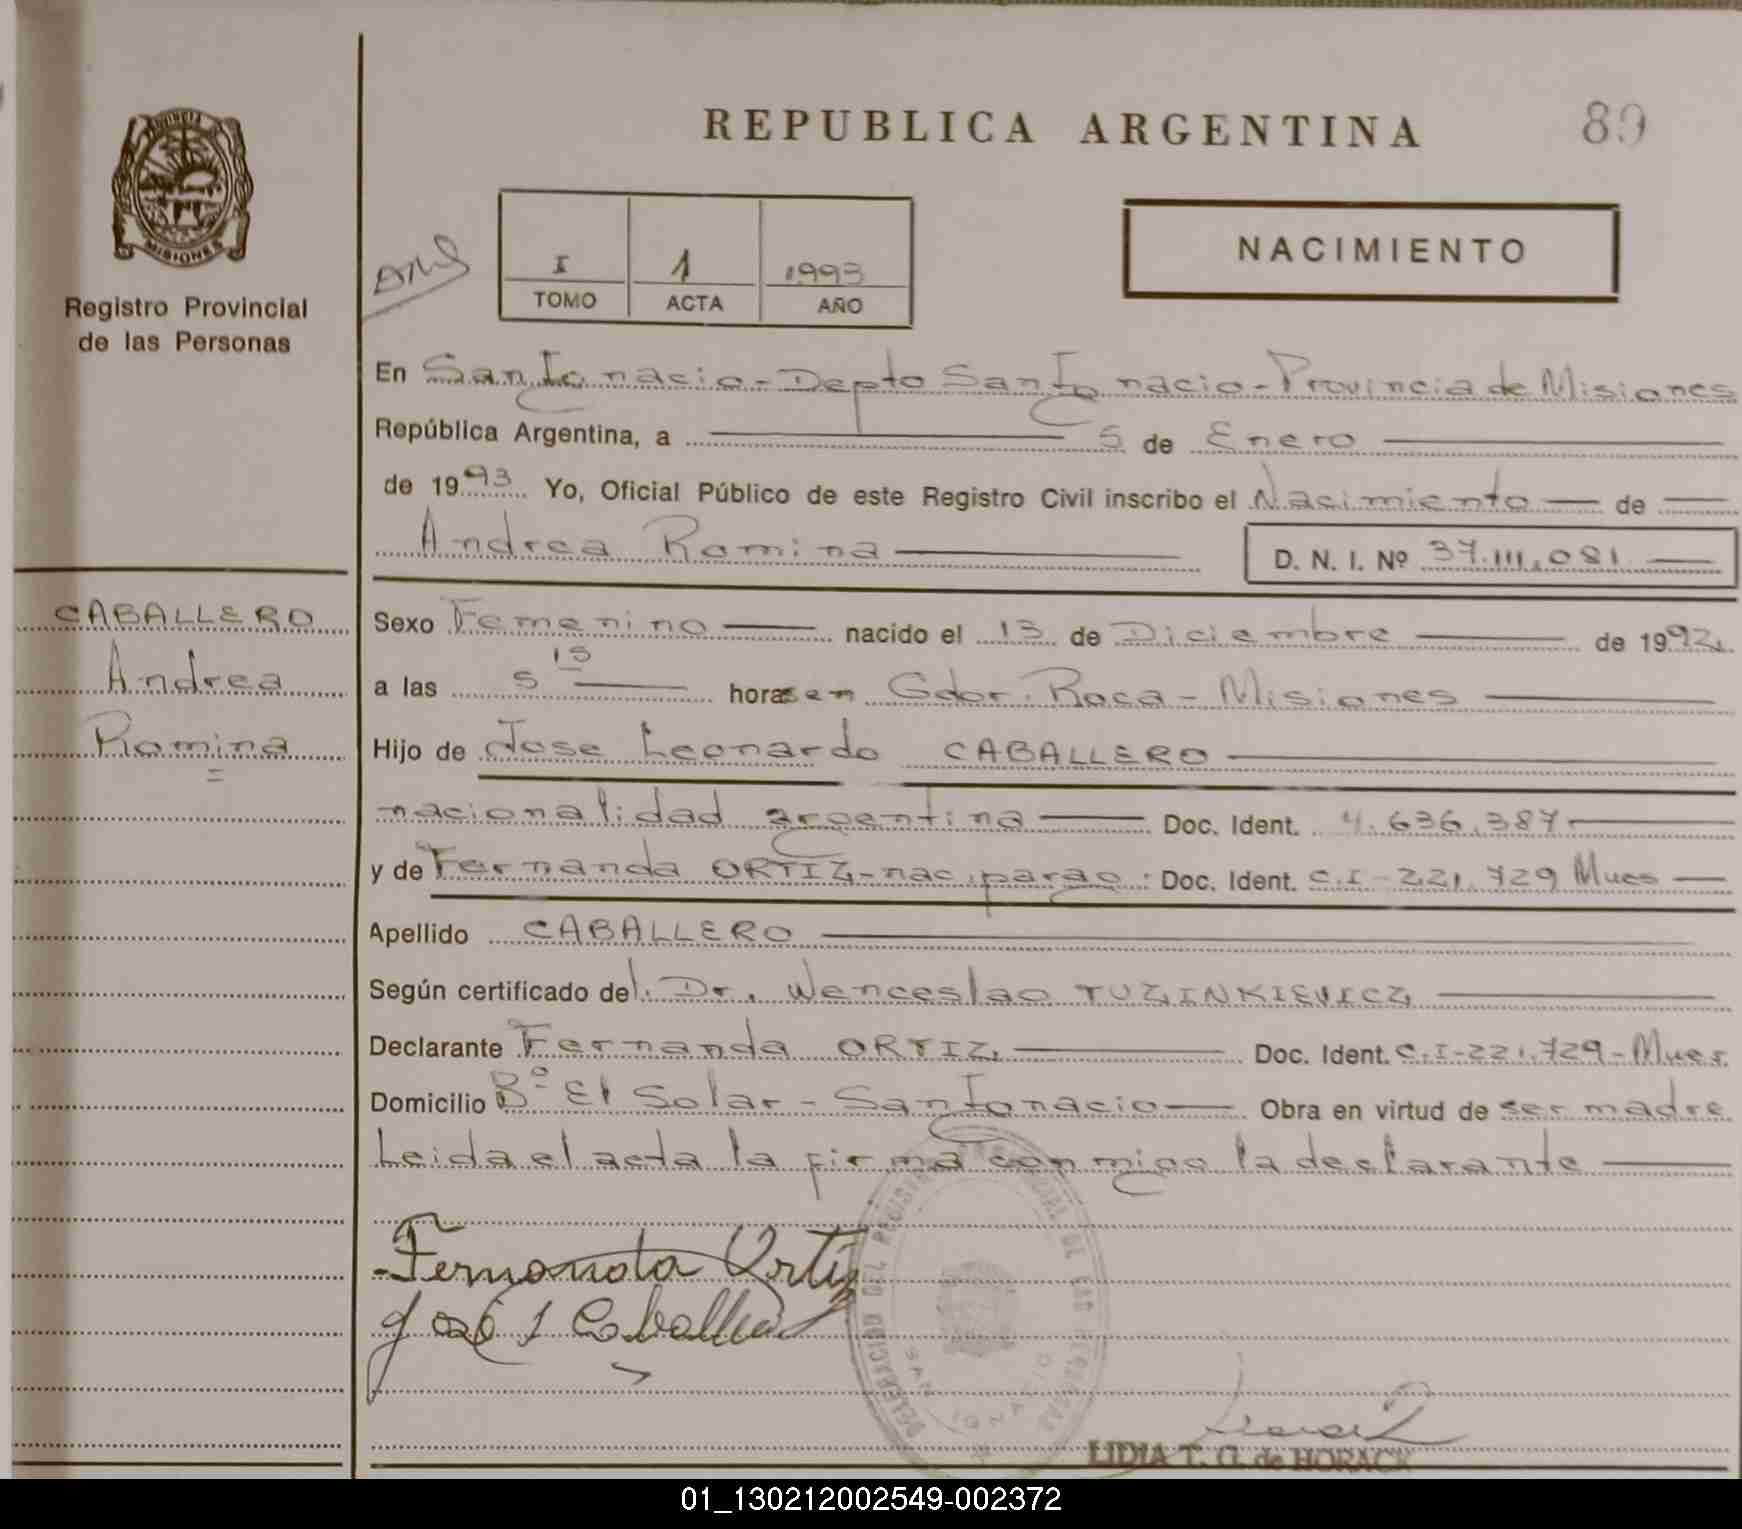 REPUBLICA ARGENTINA
89
PROVINCIA
MISIONES
Registro Provincial
de las Personas
I
1
1993
TOMO
ACTA
AÑO
NACIMIENTO
En San Ignacio - Depto San Ignacio - Provincia de Misiones
República Argentina, a 5 de Enero
de 1993 Yo, Oficial Público de este Registro Civil inscribo el Nacimiento de
Andrea Romina
D. N. I. Nº 37.111.081
CABALLERO
Andrea
Romina
Sexo Femenino nacido el 13 de Diciembre de 1992
a las 5 15 horas en Gdor. Roca - Misiones
Hijo de Jose Leonardo CABALLERO
nacionalidad argentina Doc. Ident. 4.636.387
y de Fernanda ORTIZ - nac. parag. Doc. Ident. C.I - 221.729 Mnes
Apellido CABALLERO
Según certificado del. Dr. Wenceslao TUZINKIEVICZ
Declarante Fernanda ORTIZ Doc. Ident. C.I - 221.729 - Mnes.
Domicilio Bº El Solar - San Ignacio Obra en virtud de ser madre
Leida el acta la firma conmigo la declarante
Fernanda Ortiz
José L Caballero
DELEGACION DEL REGISTRO PROVINCIAL DE LAS PERSONAS
SAN IGNACIO
LIDIA T. G. de HORACK
01_130212002549-002372